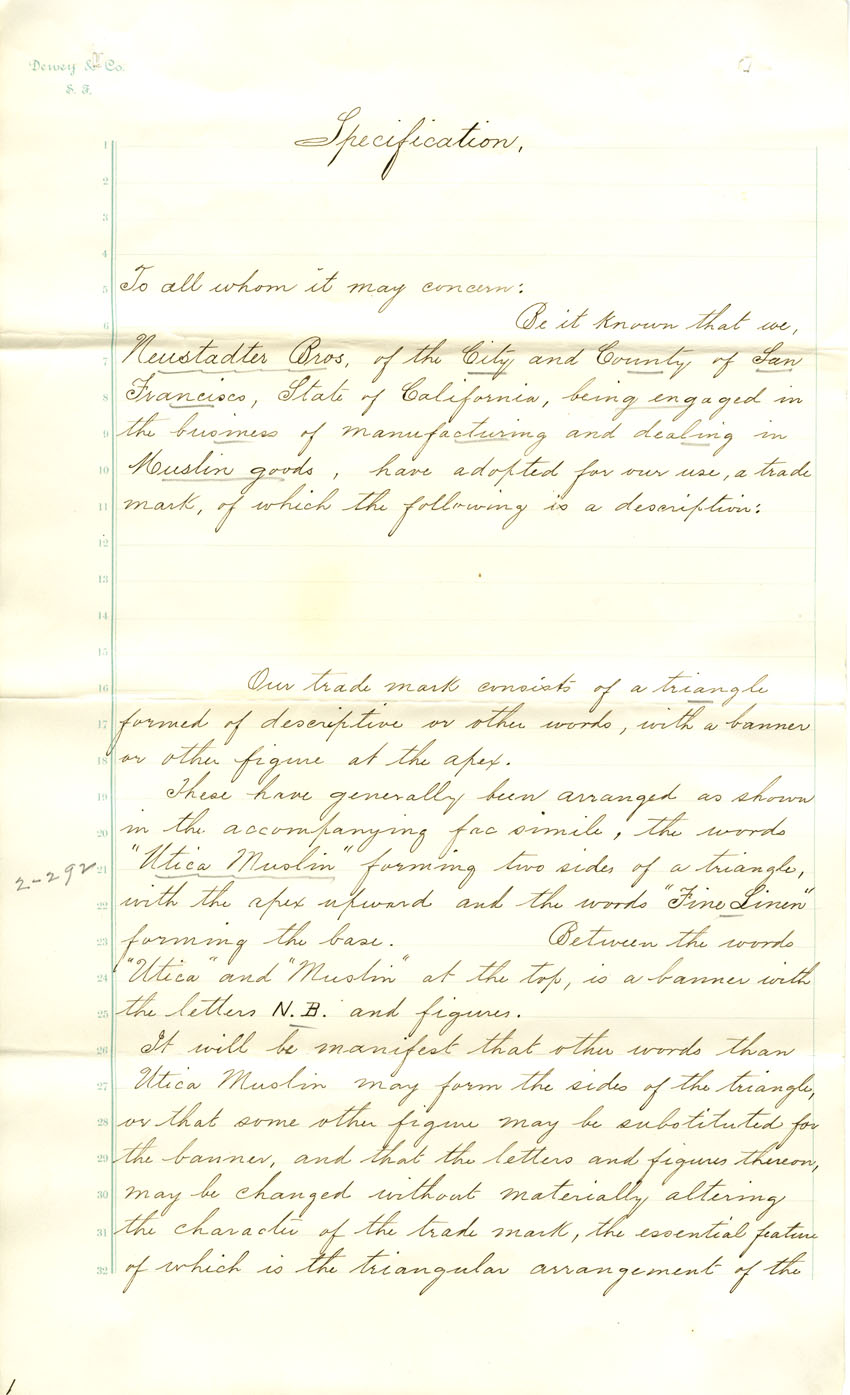 Dewey & Co.
S. F.
Specification.
1
2
3
4
5 To all whom it may concern:
6 Be it known that we,
7 Neustadter Bros, of the City and County of San
8 Francisco, State of California, being engaged in
9 the business of manufacturing and dealing in
10 Muslin goods, have adopted for our use, a trade
11 mark, of which the following is a description:
12
13
14
15
16 Our trade mark consists of a triangle
17 formed of descriptive or other words, with a banner
18 or other figure at the apex.
19 These have generally been arranged as shown
20 in the accompanying fac simile, the words
2-292
21 "Utica Muslin" forming two sides of a triangle,
22 with the apex upward and the words "Fine Linen"
23 forming the base. Between the words
24 "Utica" and "Muslin" at the top, is a banner with
25 the letters N.B. and figures.
26 It will be manifest that other words than
27 Utica Muslin may form the sides of the triangle,
28 or that some other figure may be substituted for
29 the banner, and that the letters and figures thereon,
30 may be changed without materially altering
31 the character of the trade mark, the essential feature
32 of which is the triangular arrangement of the